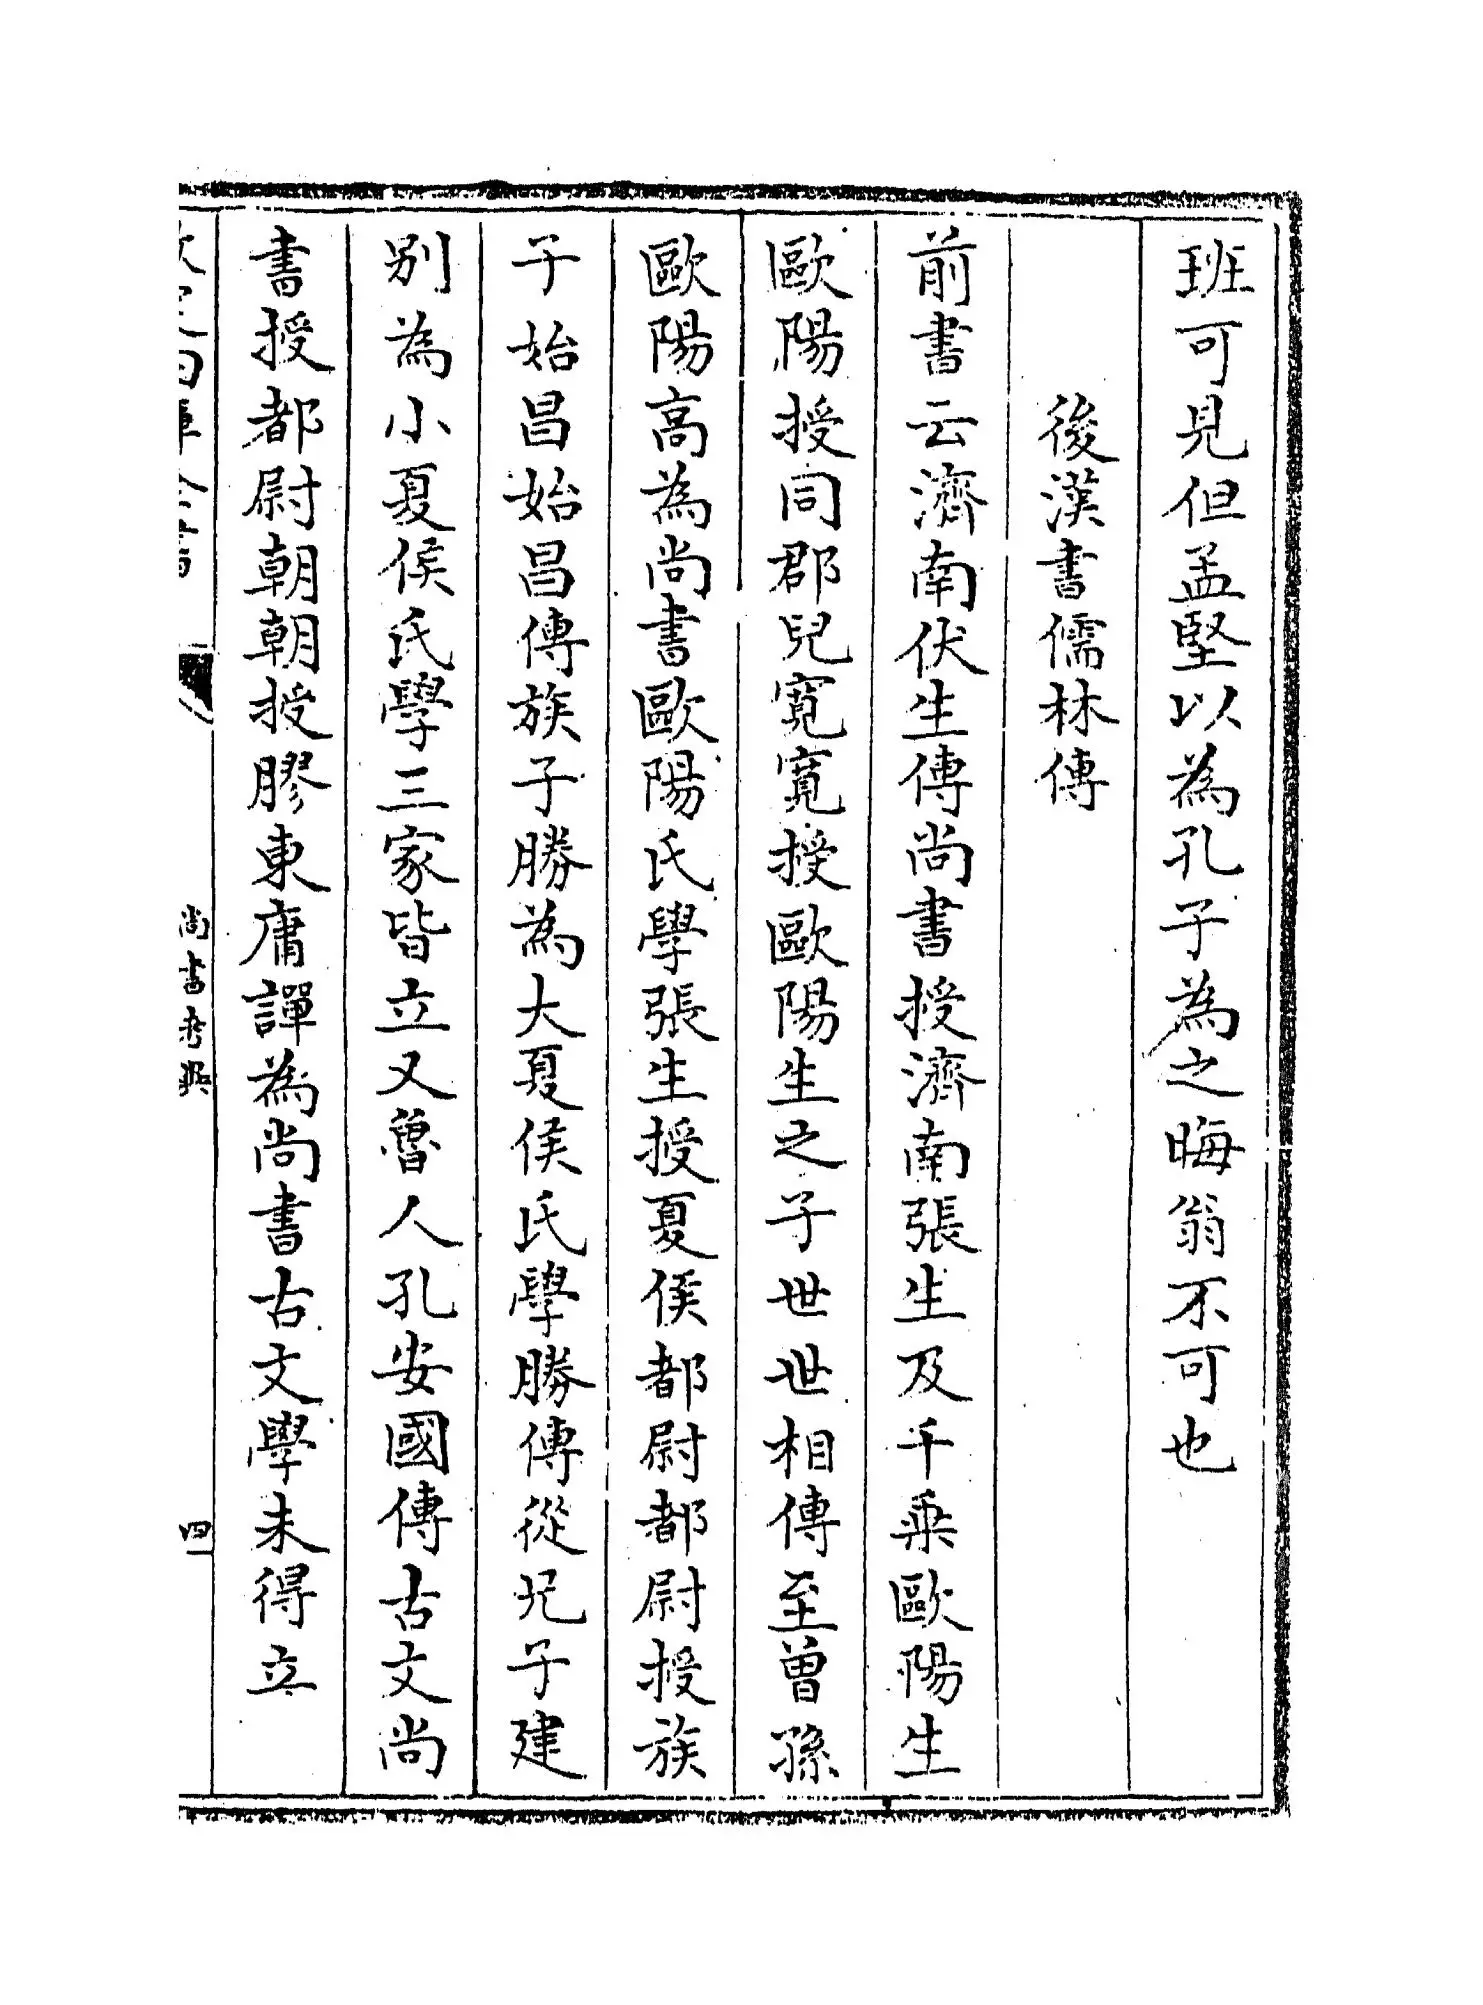 班可見但孟堅以為孔子為之晦翁不可也
後漢書儒林傳
前書云濟南伏生傳尚書授濟南張生及千乘歐陽生
歐陽授同郡兒寛寛授歐陽生之子世世相傳至曾孫
歐陽高為尚書歐陽氏學張生授夏侯都尉都尉授族
子始昌始昌傳族子勝為大夏侯氏學勝傳從兄子建
别為小夏侯氏學三家皆立又魯人孔安國傳古文尚
書授都尉朝朝授膠東庸譚為尚書古文學未得立
欽定四庫全書
尚書考異
四